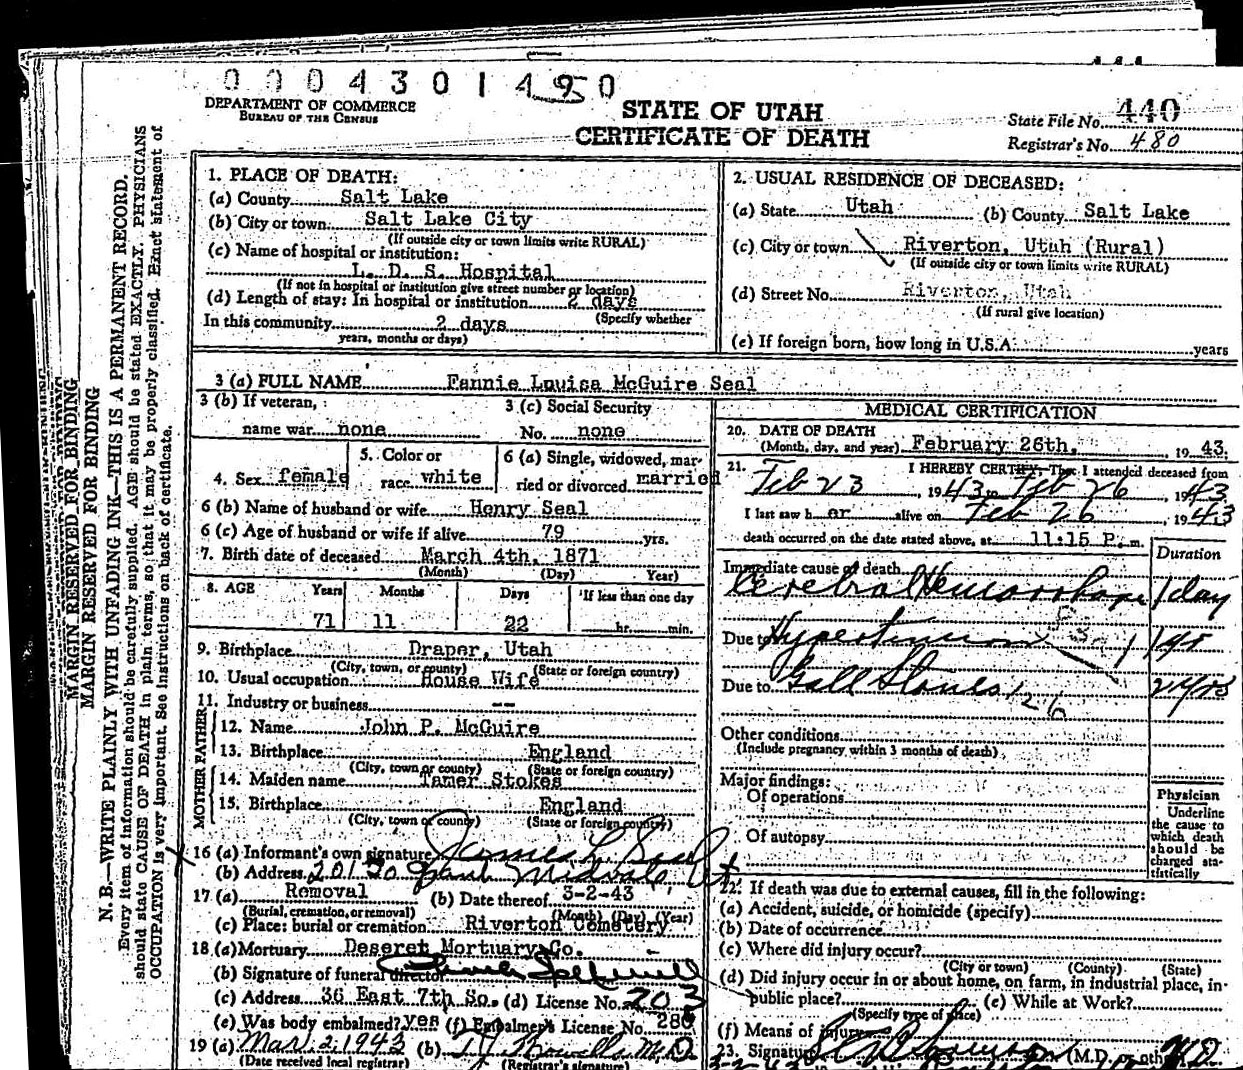 0004301490
DEPARTMENT OF COMMERCE
BUREAU OF THE CENSUS
STATE OF UTAH
CERTIFICATE OF DEATH
State File No. 440
Registrar's No. 480
MARGIN RESERVED FOR BINDING
MARGIN RESERVED FOR BINDING
N. B.—WRITE PLAINLY WITH UNFADING INK—THIS IS A PERMANENT RECORD.
Every item of information should be carefully supplied. AGE should be stated EXACTLY. PHYSICIANS
should state CAUSE OF DEATH in plain terms, so that it may be properly classified. Exact statement of
OCCUPATION is very important. See instructions on back of certificate.
1. PLACE OF DEATH:
(a) County Salt Lake
(b) City or town Salt Lake City
(If outside city or town limits write RURAL)
(c) Name of hospital or institution:
L. D. S. Hospital
(If not in hospital or institution give street number or location)
(d) Length of stay: In hospital or institution 2 days
(Specify whether
In this community 2 days
years, months or days)
2. USUAL RESIDENCE OF DECEASED:
(a) State Utah (b) County Salt Lake
(c) City or town Riverton, Utah (Rural)
(If outside city or town limits write RURAL)
(d) Street No. Riverton, Utah
(If rural give location)
(e) If foreign born, how long in U.S.A. years
3 (a) FULL NAME Fannie Louisa McGuire Seal
3 (b) If veteran,
name war none
3 (c) Social Security
No. none
4. Sex female
5. Color or
race white
6 (a) Single, widowed, mar-
ried or divorced married
6 (b) Name of husband or wife Henry Seal
6 (c) Age of husband or wife if alive 79 yrs.
7. Birth date of deceased March 4th, 1871
(Month) (Day) Year)
8. AGE Years Months Days If less than one day
71 11 22 hr. min.
9. Birthplace Draper, Utah
(City, town, or county) (State or foreign country)
10. Usual occupation House Wife
11. Industry or business --
FATHER
12. Name John P. McGuire
13. Birthplace England
(City, town or county) (State or foreign country)
MOTHER
14. Maiden name Tamer Stokes
15. Birthplace England
(City, town or county) (State or foreign country)
16 (a) Informant's own signature James L. Seal
(b) Address 201 So Midvale Ut
17 (a) Removal (b) Date thereof 3-2-43
(Burial, cremation, or removal) (Month) (Day) (Year)
(c) Place: burial or cremation Riverton Cemetery
18 (a) Mortuary Deseret Mortuary Co.
(b) Signature of funeral director
(c) Address 36 East 7th So. (d) License No. 203
(e) Was body embalmed? yes (f) Embalmer's License No. 286
19 (a) Mar 2 1943 (b) M.D.
(Date received local registrar) (Registrar's signature)
MEDICAL CERTIFICATION
20. DATE OF DEATH
(Month, day, and year) February 26th, 19 43
21. I HEREBY CERTIFY, That I attended deceased from
Feb 23, 1943 to Feb 26, 1943
I last saw h er alive on Feb 26, 1943
death occurred on the date stated above, at 11:15 P. m.
Immediate cause of death Duration
Cerebral Hemorrhage 1 day
Due to Hypertension 1 yr
Due to Gall Stones 2 yrs
126
Other conditions
(Include pregnancy within 3 months of death)
Major findings:
Of operations
Of autopsy
Physician
Underline
the cause to
which death
should be
charged sta-
tistically
22. If death was due to external causes, fill in the following:
(a) Accident, suicide, or homicide (specify)
(b) Date of occurrence
(c) Where did injury occur?
(City or town) (County) (State)
(d) Did injury occur in or about home, on farm, in industrial place, in
public place? (e) While at Work?
(Specify type of place)
(f) Means of injury
23. Signature (M.D. or other) M.D.